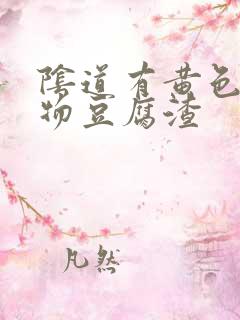 陰道有黄色
物豆腐渣
凡然